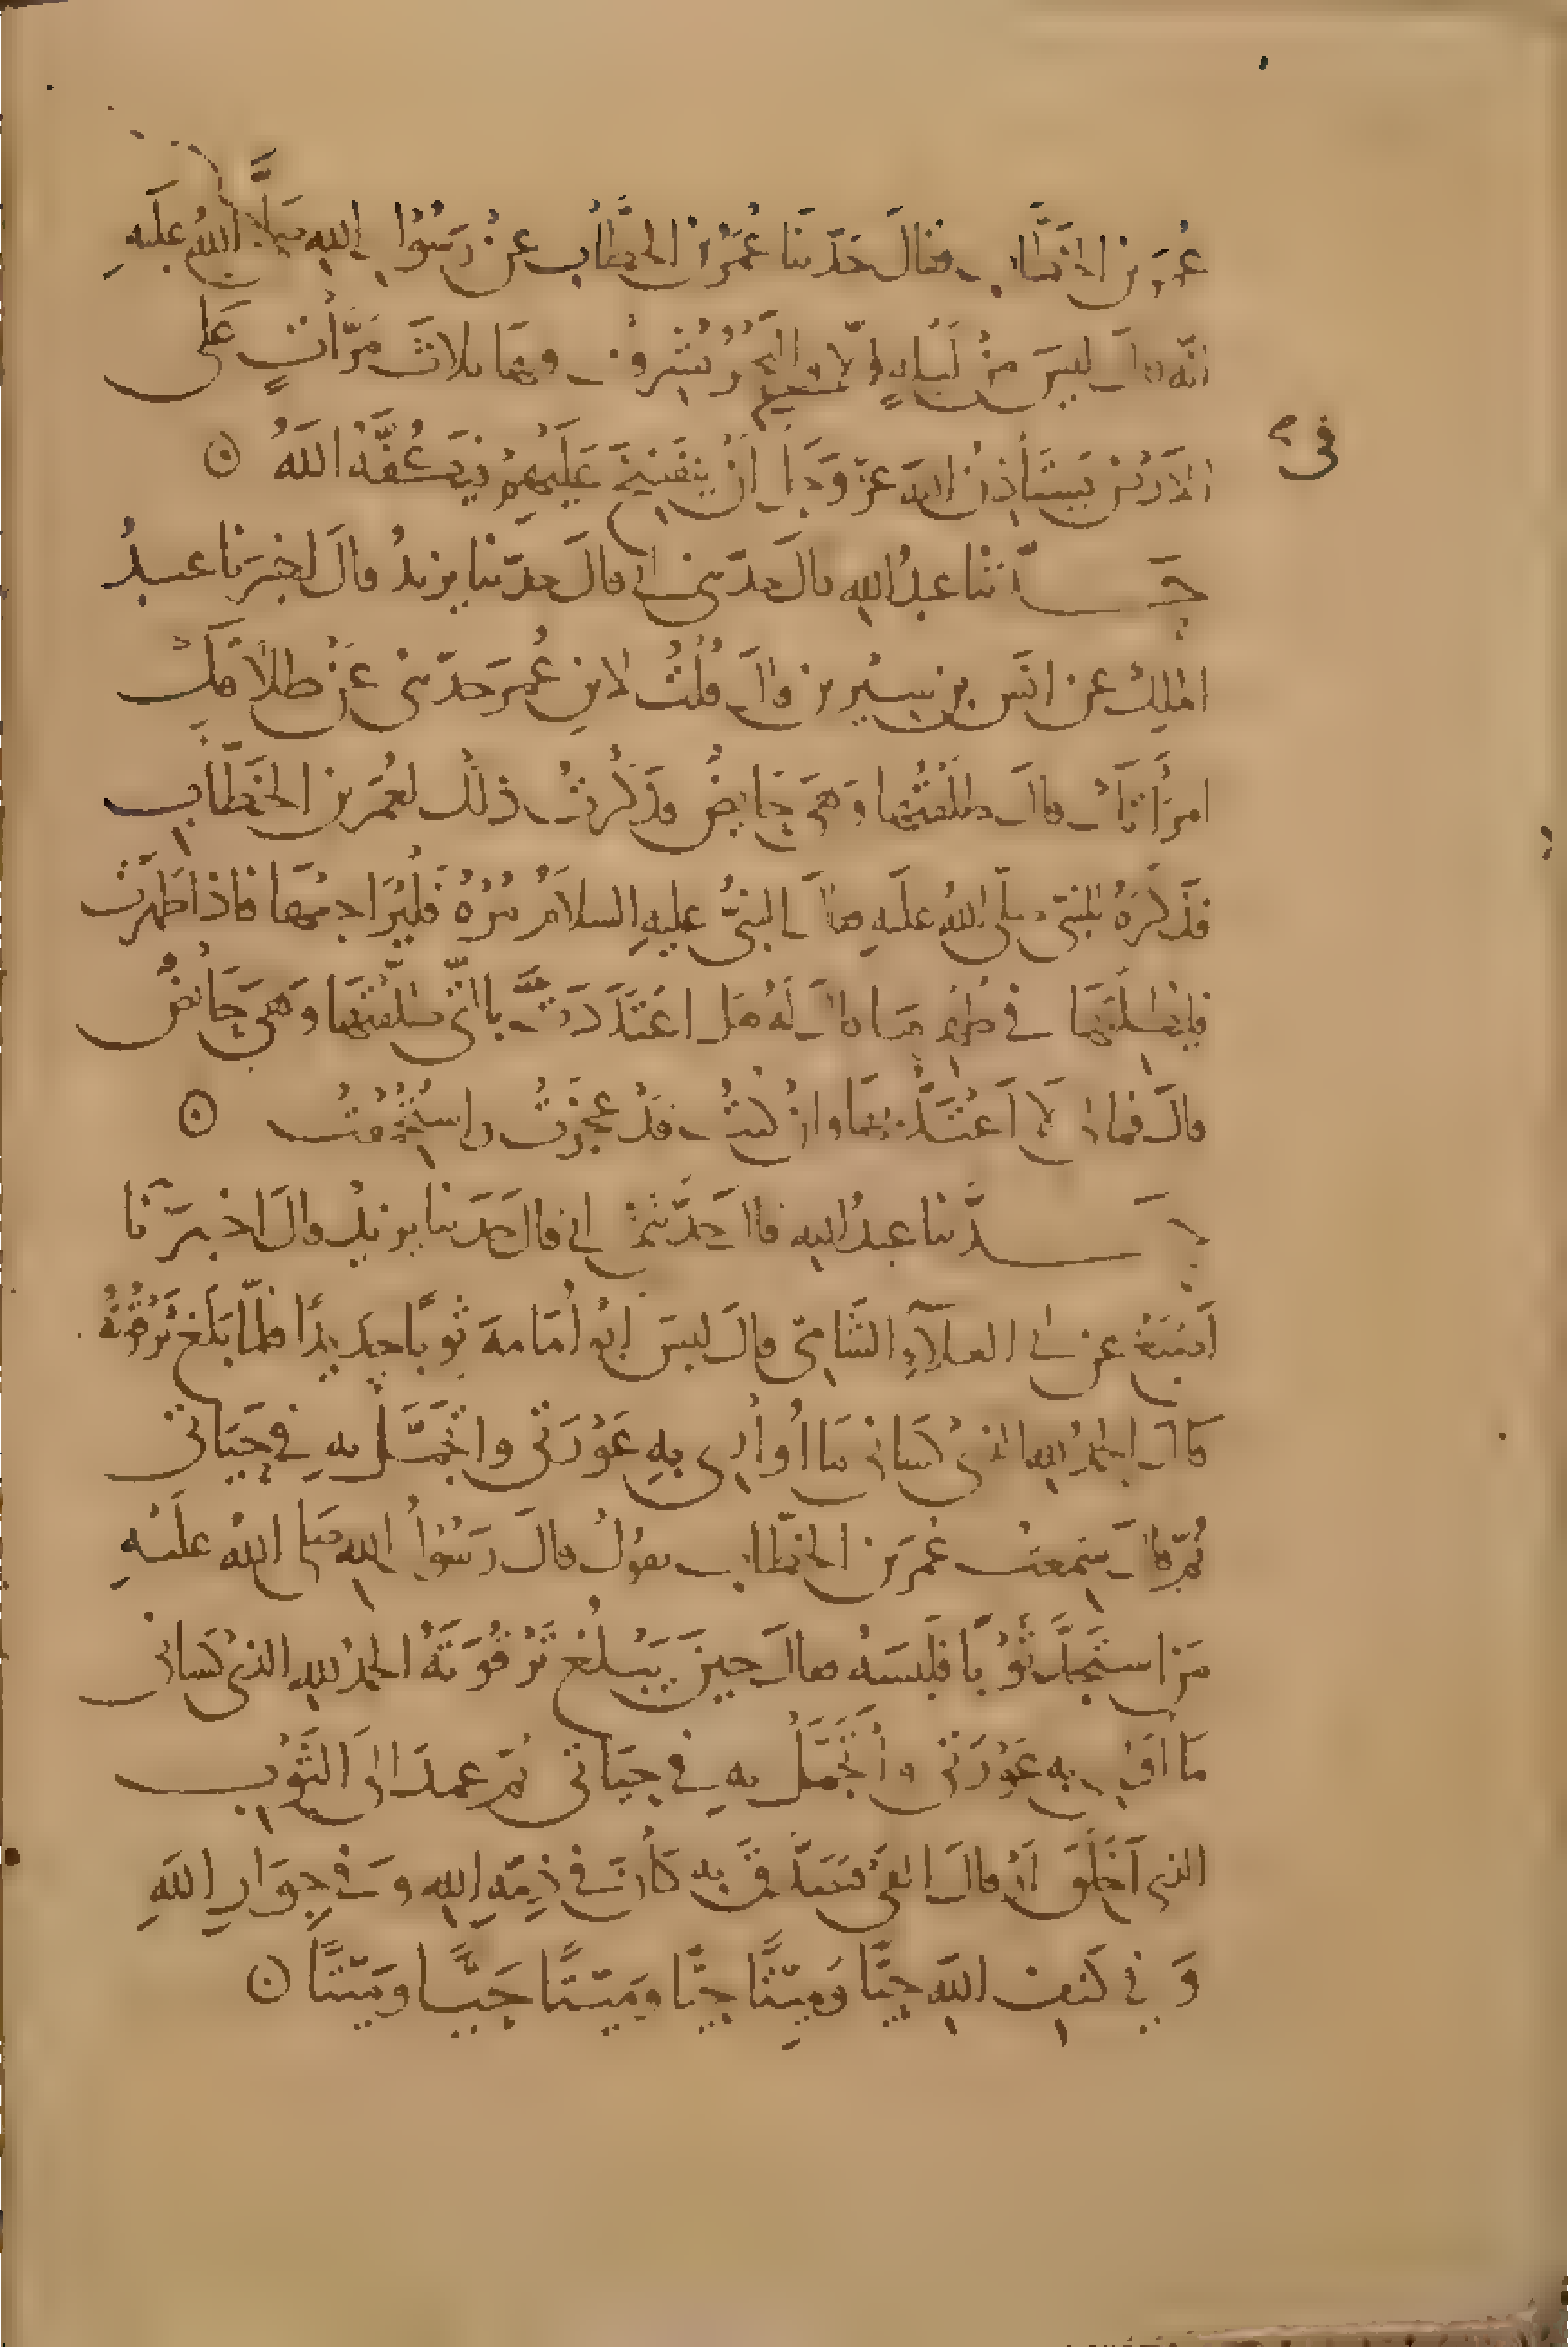 عُمَر بن الخَطَّاب فقالَ حَدّثنا عُمَرُ بن الخطَّاب عن رَسُوْلِ اللهِ صَلَّى اللهُ عليهِ
انّه قالَ ليسَ مِنْ لَيْلةٍ اِلّا والبَحْرُ يُشْرِفُ فيها ثلاثَ مَرَّاتٍ عَلى
الارْضِ يَسْتَأذِنُ اللهَ عزّ وَجَلّ اَنْ يَنفَضِخَ عَلَيهِمْ فيَكُفَّهُ اللهُ ۞
في
حَدّثنا عبدُ اللهِ قالَ حدّثني ابي قالَ حدّثنا يزيدُ قالَ اخبرَنا عبدُ
الملِك عن انَس بنِ سِيْرين قالَ قُلْتُ لابنِ عُمَر حدّثني عَنْ طلاقِكَ
امرَأتَكَ قالَ طلّقتُها وَهيَ حَايِضٌ فذَكرْتُ ذلك لعُمَر بن الخَطَّابِ
فذَكَرَهُ للنبيّ صلّى اللهُ عليهِ فقالَ النبيُّ عليهِ السلامُ مُرْهُ فَلْيُرَاجِعْهَا فاذا طَهُرَتْ
فليُطلّقْهَا في طُهْرِهَا قالَ لَهُ هَل اعْتَدَدْتَ بالّتي طلّقتَها وَهيَ حَائضٌ
قالَ فمالي لا اَعْتَدُّ بهَا وان كُنْتُ قَدْ عَجَزْتُ واسْتَحْمَقْتُ ۞
حَدَّثنا عبدُ اللهِ قالَ حَدَّثني ابي قالَ حَدّثنا يزيدُ قالَ اخبَرَنا
اَصْبَغُ عن ابي العَلاءِ الشّامِيّ قالَ لبِسَ ابُو اُمَامهَ ثوبًا جدِيدًا فلمّا بَلَغ تَرْقُوَتَهُ
قالَ الحمدُ للهِ الذي كَسَاني مَا اُوَارِي بِهِ عَوْرَتي واتجَمَّلُ بهِ في حَيَاتي
ثمّ قالَ سَمِعتُ عُمَر بن الخطّاب يقولُ قالَ رَسُوْلُ اللهِ صَلى اللهُ عليهِ
مَن اسْتَجدَّ ثَوْبًا فلَبِسَهُ فقالَ حينَ يَبْلُغُ تَرْقُوَتَهُ الحمدُ للهِ الذي كَسَاني
مَا اُوَاري بهِ عَوْرَتي واَتَجَمَّلُ بهِ في حيَاتي ثمّ عمدَ الى الثّوْبِ
الذي اَخْلَقَ اَوْ قالَ اَلقَى فتَصَدَّقَ بِهِ كَانَ في ذِمّةِ اللهِ وَ في جِوَارِ اللهِ
وَ في كَنَفِ اللهِ حَيًّا وَمَيّتًا حَيًّا ومَيّتًا حَيًّا ومَيّتًا ۞